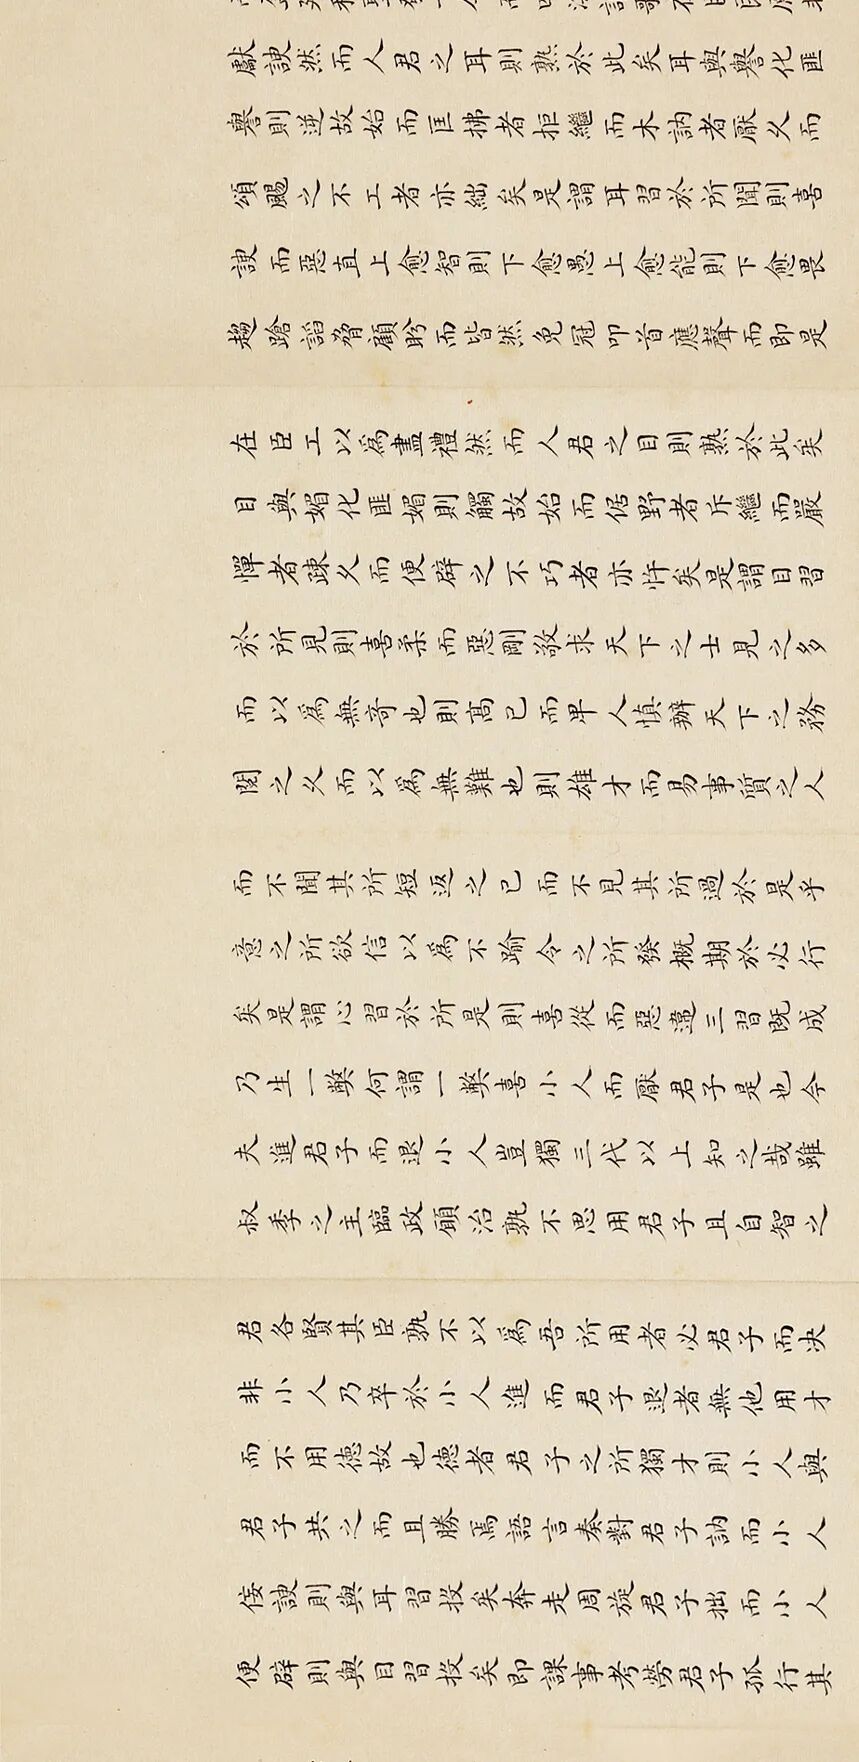 獻諛然而人君之耳則熟於此矣耳與譽化匪
譽則逆故始而匡拂者拒繼而木訥者厭久而
頌颺之不工者亦絀矣是謂耳習於所聞則喜
諛而惡直上愈智則下愈愚上愈能則下愈畏
趨蹌諂脅顧盼而皆然免冠叩首應聲而即是
在臣工以為盡禮然而人君之目則熟於此矣
目與媚化匪媚則觸故始而倨野者斥繼而嚴
憚者疎久而便辟之不巧者亦忤矣是謂目習
於所見則喜柔而惡剛敬求天下之士見之多
而以為無奇也則高已而卑人慎辦天下之務
閱之久而以為無難也則雄才而易事質之人
而不聞其所短返之已而不見其所過於是乎
意之所欲信以為不踰令之所發概期於必行
矣是謂心習於所是則喜從而惡違三習既成
乃生一弊何謂一弊喜小人而厭君子是也今
夫進君子而退小人豈獨三代以上知之哉雖
叔季之主臨政願治孰不思用君子且自智之
君各賢其臣孰不以為吾所用者必君子而决
非小人乃卒於小人進而君子退者無他用才
而不用徳故也徳者君子之所獨才則小人與
君子共之而且勝焉語言奏對君子訥而小人
佞諛則與耳習投矣奔走周旋君子拙而小人
便辟則與目習投矣即課事考勞君子孤行其